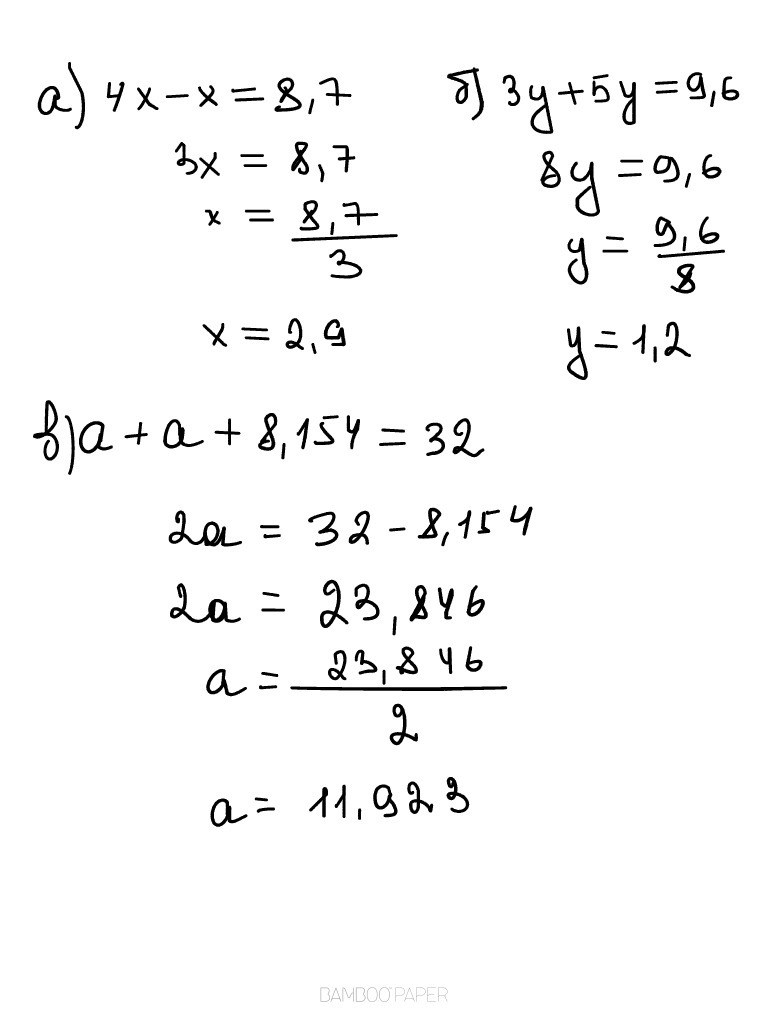 а) 4x - x = 8,7
3x = 8,7
x = 8,7/3
x = 2,9
б) 3y + 5y = 9,6
8y = 9,6
y = 9,6/8
y = 1,2
в) a + a + 8,154 = 32
2a = 32 - 8,154
2a = 23,846
a = 23,846/2
a = 11,923
BAMBOO PAPER